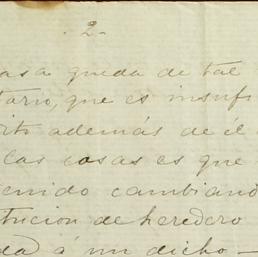 . 2 -
asa queda de tal
tario, que es insufi
ito además de él
las cosas es que
enido cambiand
tucion de heredero
da á mi dicho -